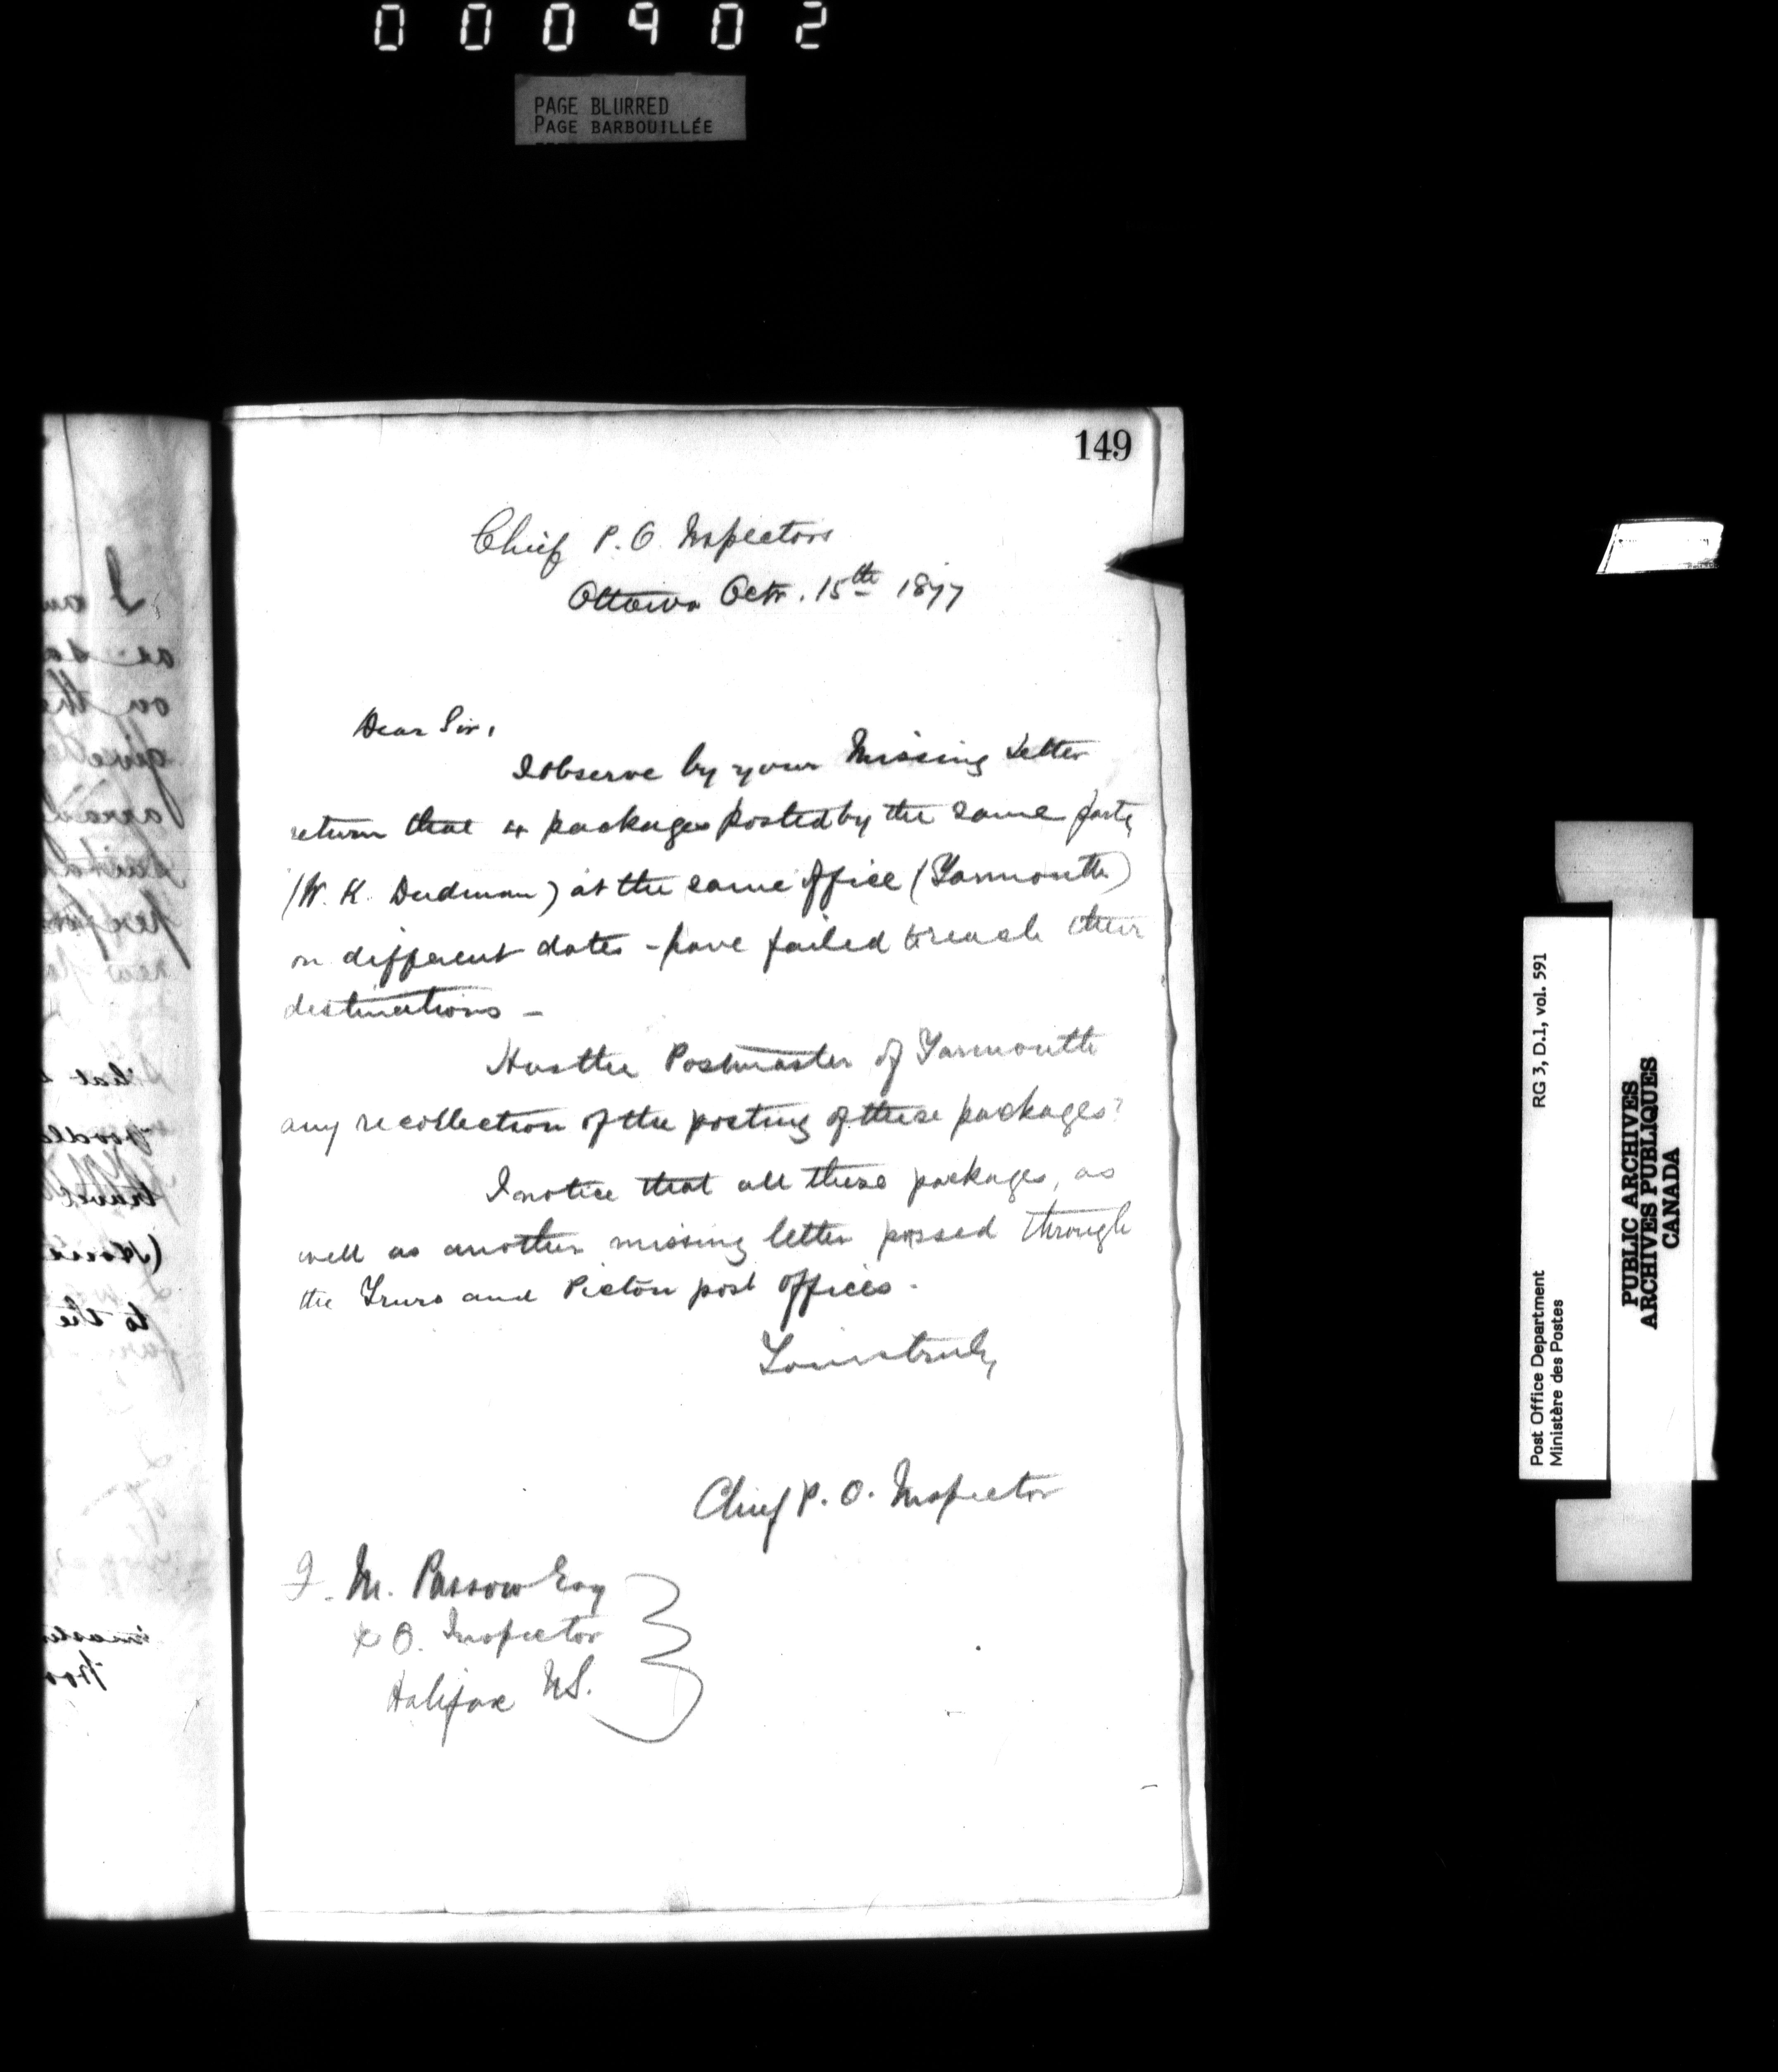 000902
PAGE BLURRED
PAGE BARBOUILLÉE
149
Chief P. O. Inspectors
Ottawa Octr. 15th 1877
Dear Sir,
I observe by your Missing Letter
return that 4 packages posted by the same party
(W. K. Dudman) at the same office (Yarmouth)
on different dates - have failed to reach their
destinations -
Has the Postmaster of Yarmouth
any recollection of the posting of these packages?
I notice that all these packages, as
well as another missing letter passed through
the Truro and Pictou post offices.
Yours truly,
Chief P. O. Inspector
F. M. Passow Esq
P. O. Inspector
Halifax N.S.
RG 3, D.1, vol. 591
Post Office Department
Ministère des Postes
PUBLIC ARCHIVES
ARCHIVES PUBLIQUES
CANADA